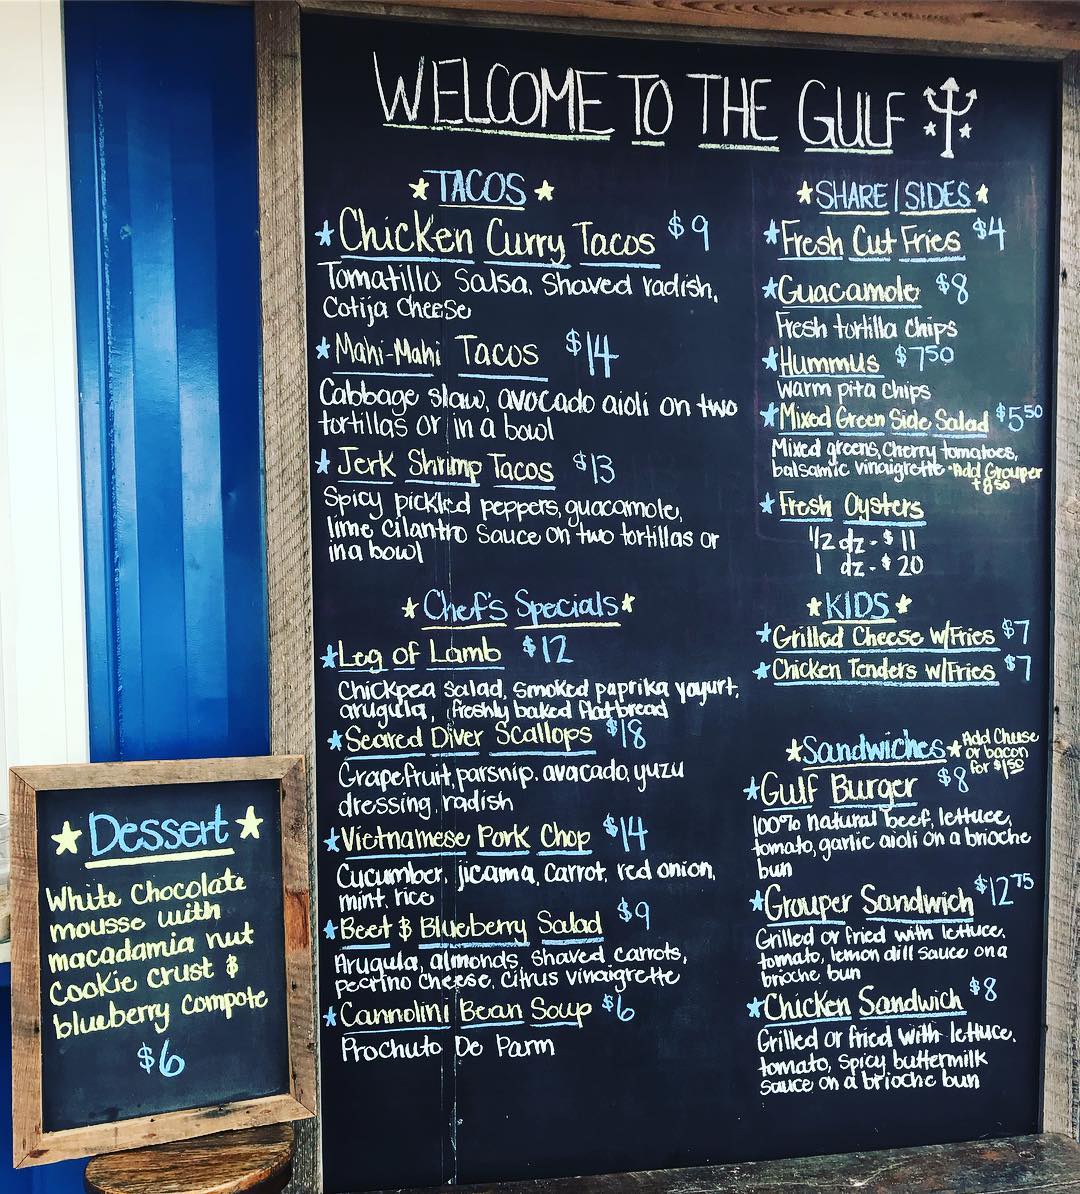 WELCOME TO THE GULF
TACOS
Chicken Curry Tacos $9
Tomatillo Salsa, Shaved radish,
Cotija Cheese
Mahi-Mahi Tacos $14
Cabbage slaw, avocado aioli on two
tortillas or in a bowl
Jerk Shrimp Tacos $13
Spicy pickled peppers, guacamole,
lime cilantro sauce on two tortillas or
in a bowl
Chef's Specials
Leg of Lamb $12
Chickpea salad, smoked paprika yogurt,
arugula, freshly baked flatbread
Seared Diver Scallops $18
Grapefruit, parsnip, avocado, yuzu
dressing, radish
Vietnamese Pork Chop $14
Cucumber, jicama, Carrot, red onion,
mint, rice
Beet & Blueberry Salad $9
Arugula, almonds, shaved carrots,
pecrino cheese, citrus vinaigrette
Cannolini Bean Soup $6
Prochuto De Parm
SHARE/SIDES
Fresh Cut Fries $4
Guacamole $8
Fresh tortilla chips
Hummus $7.50
warm pita chips
Mixed Green Side Salad $5.50
Mixed greens, Cherry tomatoes,
balsamic vinaigrette *Add Grouper
+8.50
Fresh Oysters
1/2 dz - $11
1 dz - $20
KIDS
Grilled Cheese w/Fries $7
Chicken Tenders w/Fries $7
Sandwiches Add Cheese
or bacon
for $1.50
Gulf Burger $8
100% natural beef, lettuce,
tomato, garlic aioli on a brioche
bun
Grouper Sandwich $12.75
Grilled or fried with lettuce,
tomato, lemon dill sauce on a
brioche bun
Chicken Sandwich $8
Grilled or fried with lettuce,
tomato, spicy buttermilk
sauce on a brioche bun
Dessert
White Chocolate
mousse with
macadamia nut
cookie crust &
blueberry compote
$6